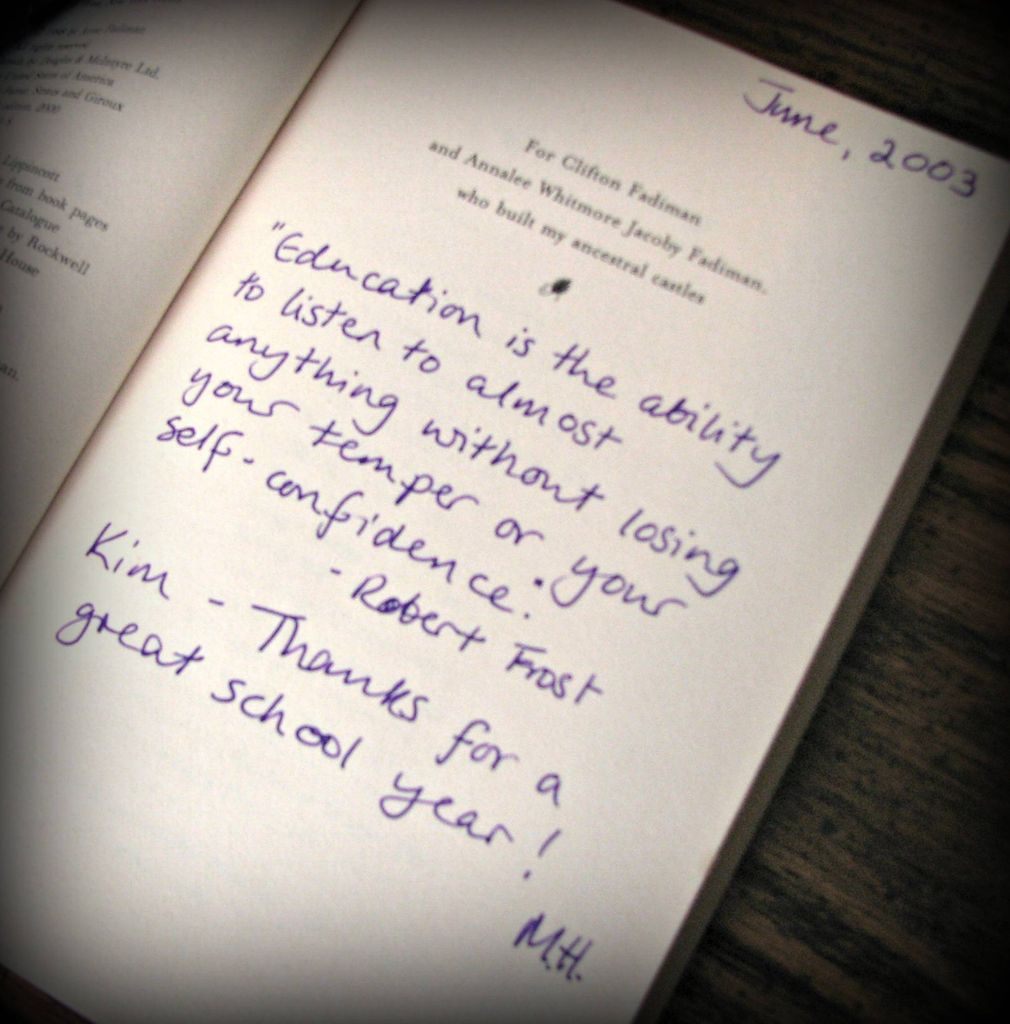 by Anne Fadiman
rights reserved
by Douglas & McIntyre Ltd.
United States of America
Farrar, Straus and Giroux
edition, 2000
Lippincott
from book pages
Catalogue
by Rockwell
House
an.
June, 2003
For Clifton Fadiman
and Annalee Whitmore Jacoby Fadiman,
who built my ancestral castles
"Education is the ability
to listen to almost
anything without losing
your temper or your
self-confidence."
- Robert Frost
Kim - Thanks for a
great school year!
M.H.